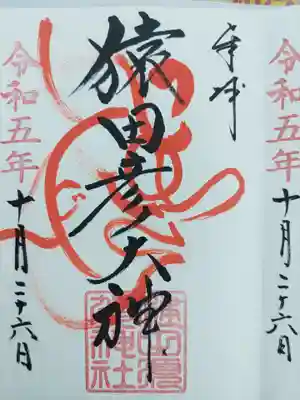 奉拝
猿田彦大神
令和五年
十月二十六日
令和五年
十月二十六日